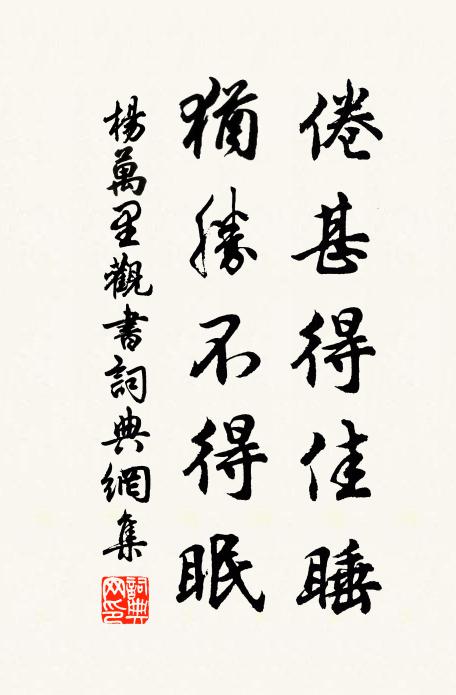 倦甚得佳睡
猶勝不得眠
楊萬里觀書詞典網集
詞典網印